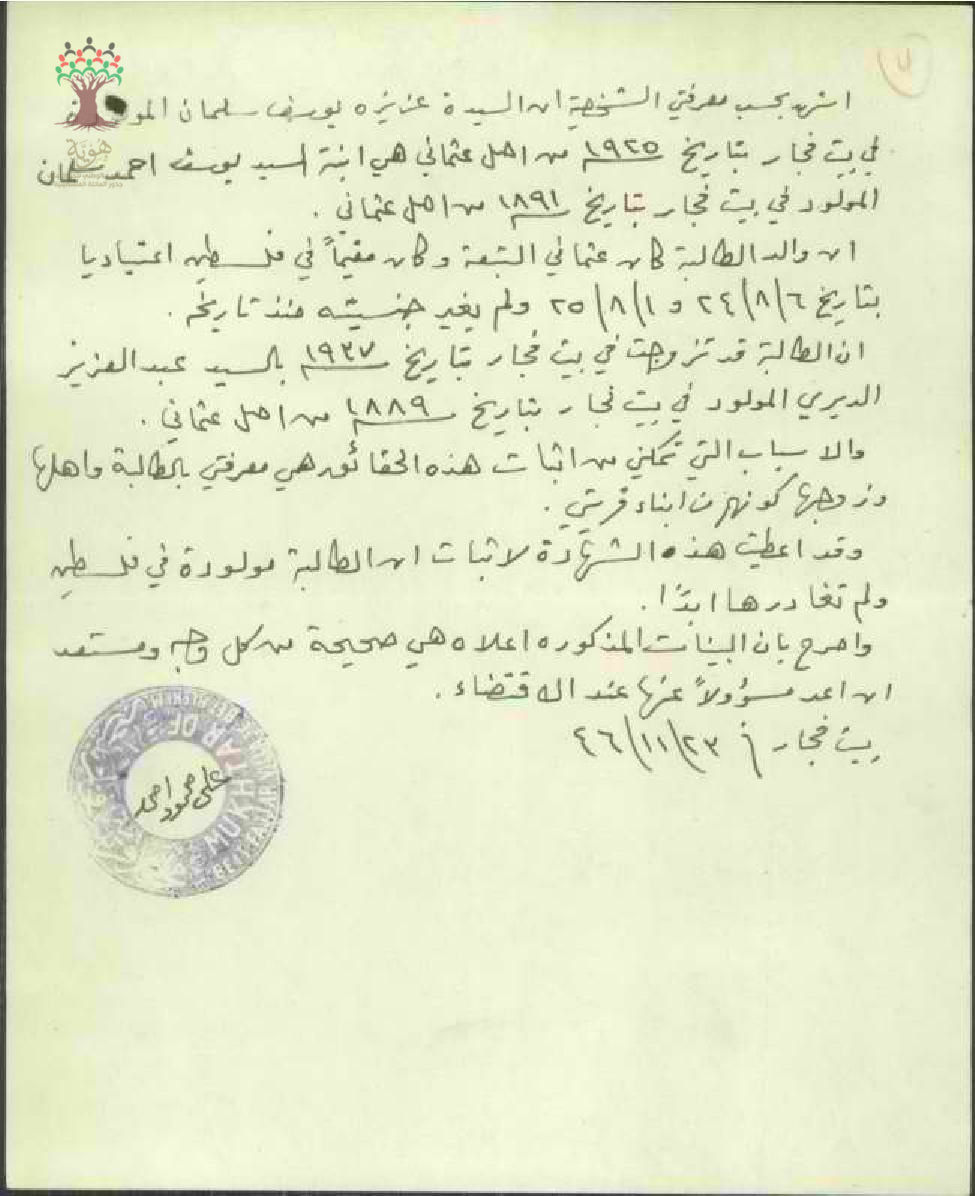 اشهد بحسب معرفتي الشخصية ان السيدة عزيزه يوسف سلمان المولودة
في بيت فجار بتاريخ ١٩٢٥ من اصل عثماني هي ابنة السيد يوسف احمد سلمان
المولود في بيت فجار بتاريخ ١٨٩١ من اصل عثماني .
ان والد الطالبة كان عثماني التبعة وكان مقيماً في فلسطين اعتياديا
بتاريخ ٢٤/٨/٦ و ٢٥/٨/١ ولم يغير جنسيته منذ تاريخه .
ان الطالبة قد تزوجت في بيت فجار بتاريخ ١٩٣٧ بالسيد عبد العزيز
الديري المولود في بيت فجار بتاريخ ١٨٨٩ من اصل عثماني .
والاسباب التي تمكني من اثبات هذه الحقائق هي معرفتي بالطالبة واهلها
وزوجها كونهم من ابناء قريتي .
وقد اعطيت هذه الشهادة لاثبات ان الطالبة مولودة في فلسطين
ولم تغادرها ابدًا .
واصرح بان البينات المذكوره اعلاه هي صحيحة من كل وجه ومستعد
ان اعد مسؤولاً عنها عند الاقتضاء .
بيت فجار في ٤٦/١١/٢٣
علي محمود احمد
MUKHTAR OF
هوية